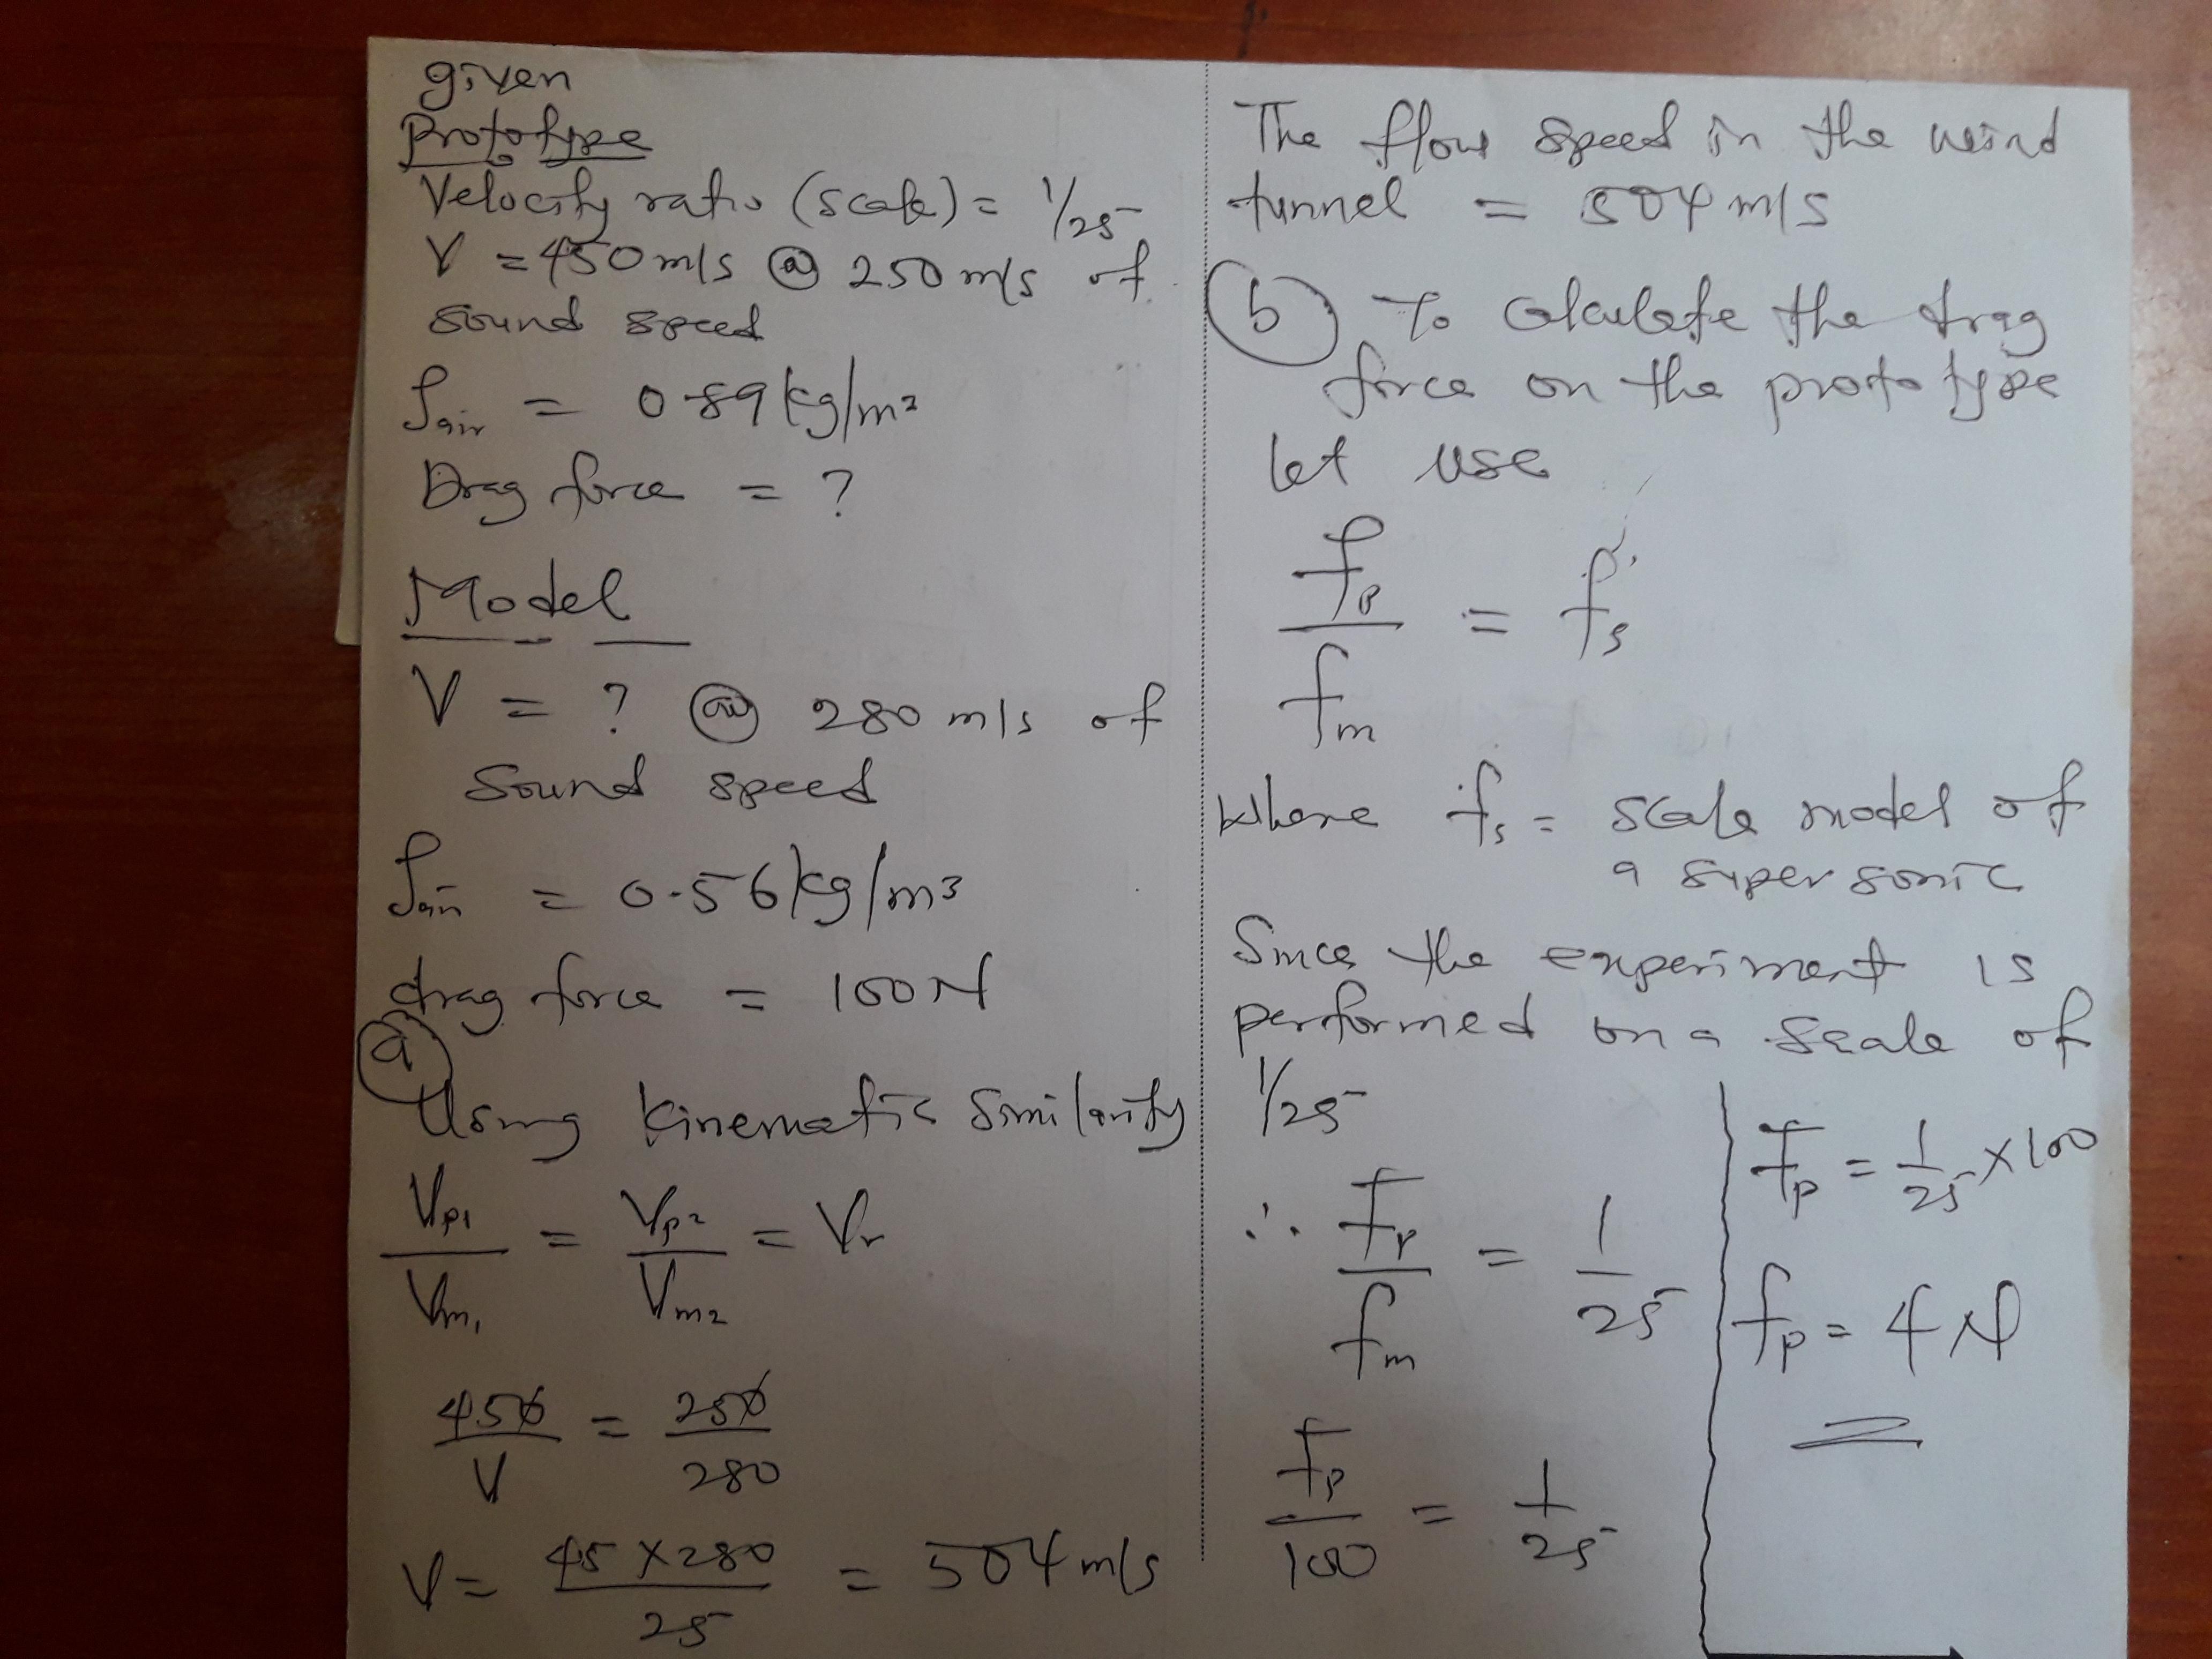 given
Prototype
Velocity ratio (scale) = 1/25
V = 450 m/s @ 250 m/s of
sound speed
ρair = 0.89 kg/m²
Drag force = ?
Model
V = ? @ 280 m/s of
Sound speed
ρair = 0.56 kg/m³
drag force = 100N
(a)
Using kinematic similarity
Vp1/Vm1 = Vp2/Vm2 = Vr
450/V = 250/280
V = 45 X 280/25 = 504 m/s
The flow speed in the wind
tunnel = 504 m/s
(b) To calculate the drag
force on the prototype
let use
fp/fm = fs
where fs = scale model of
a supersonic
Since the experiment is
performed on a scale of
1/25
∴ Fp/fm = 1/25
Fp/100 = 1/25
Fp = 1/25 X 100
fp = 4N